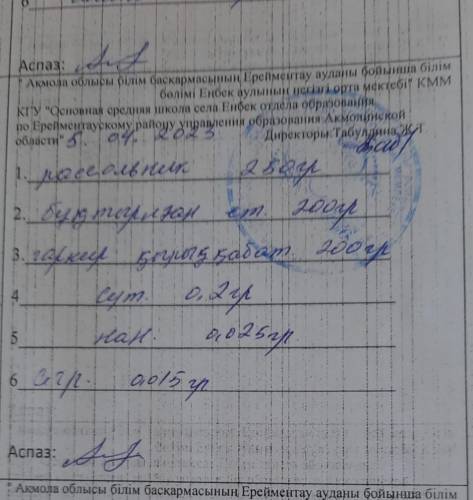 Аспаз:
" Ақмола облысы білім басқармасының Ерейментау ауданы бойынша білім
бөлімі Еңбек ауылының негізгі орта мектебі" КММ
КГУ "Основная средняя школа села Енбек отдела образования
по Ерейментаускому району управления образования Акмолинской
области" 5. 04. 2023 Директоры: Табулдина Ж.Т
1. рассольник 250гр
2. бұқтырылған ет. 200гр
3. гарнир қоурық қабат. 200гр
4 сүт. 0,2гр
5 нан. 0,025гр
6 0,015гр
Аспаз:
" Ақмола облысы білім басқармасының Ерейментау ауданы бойынша білім